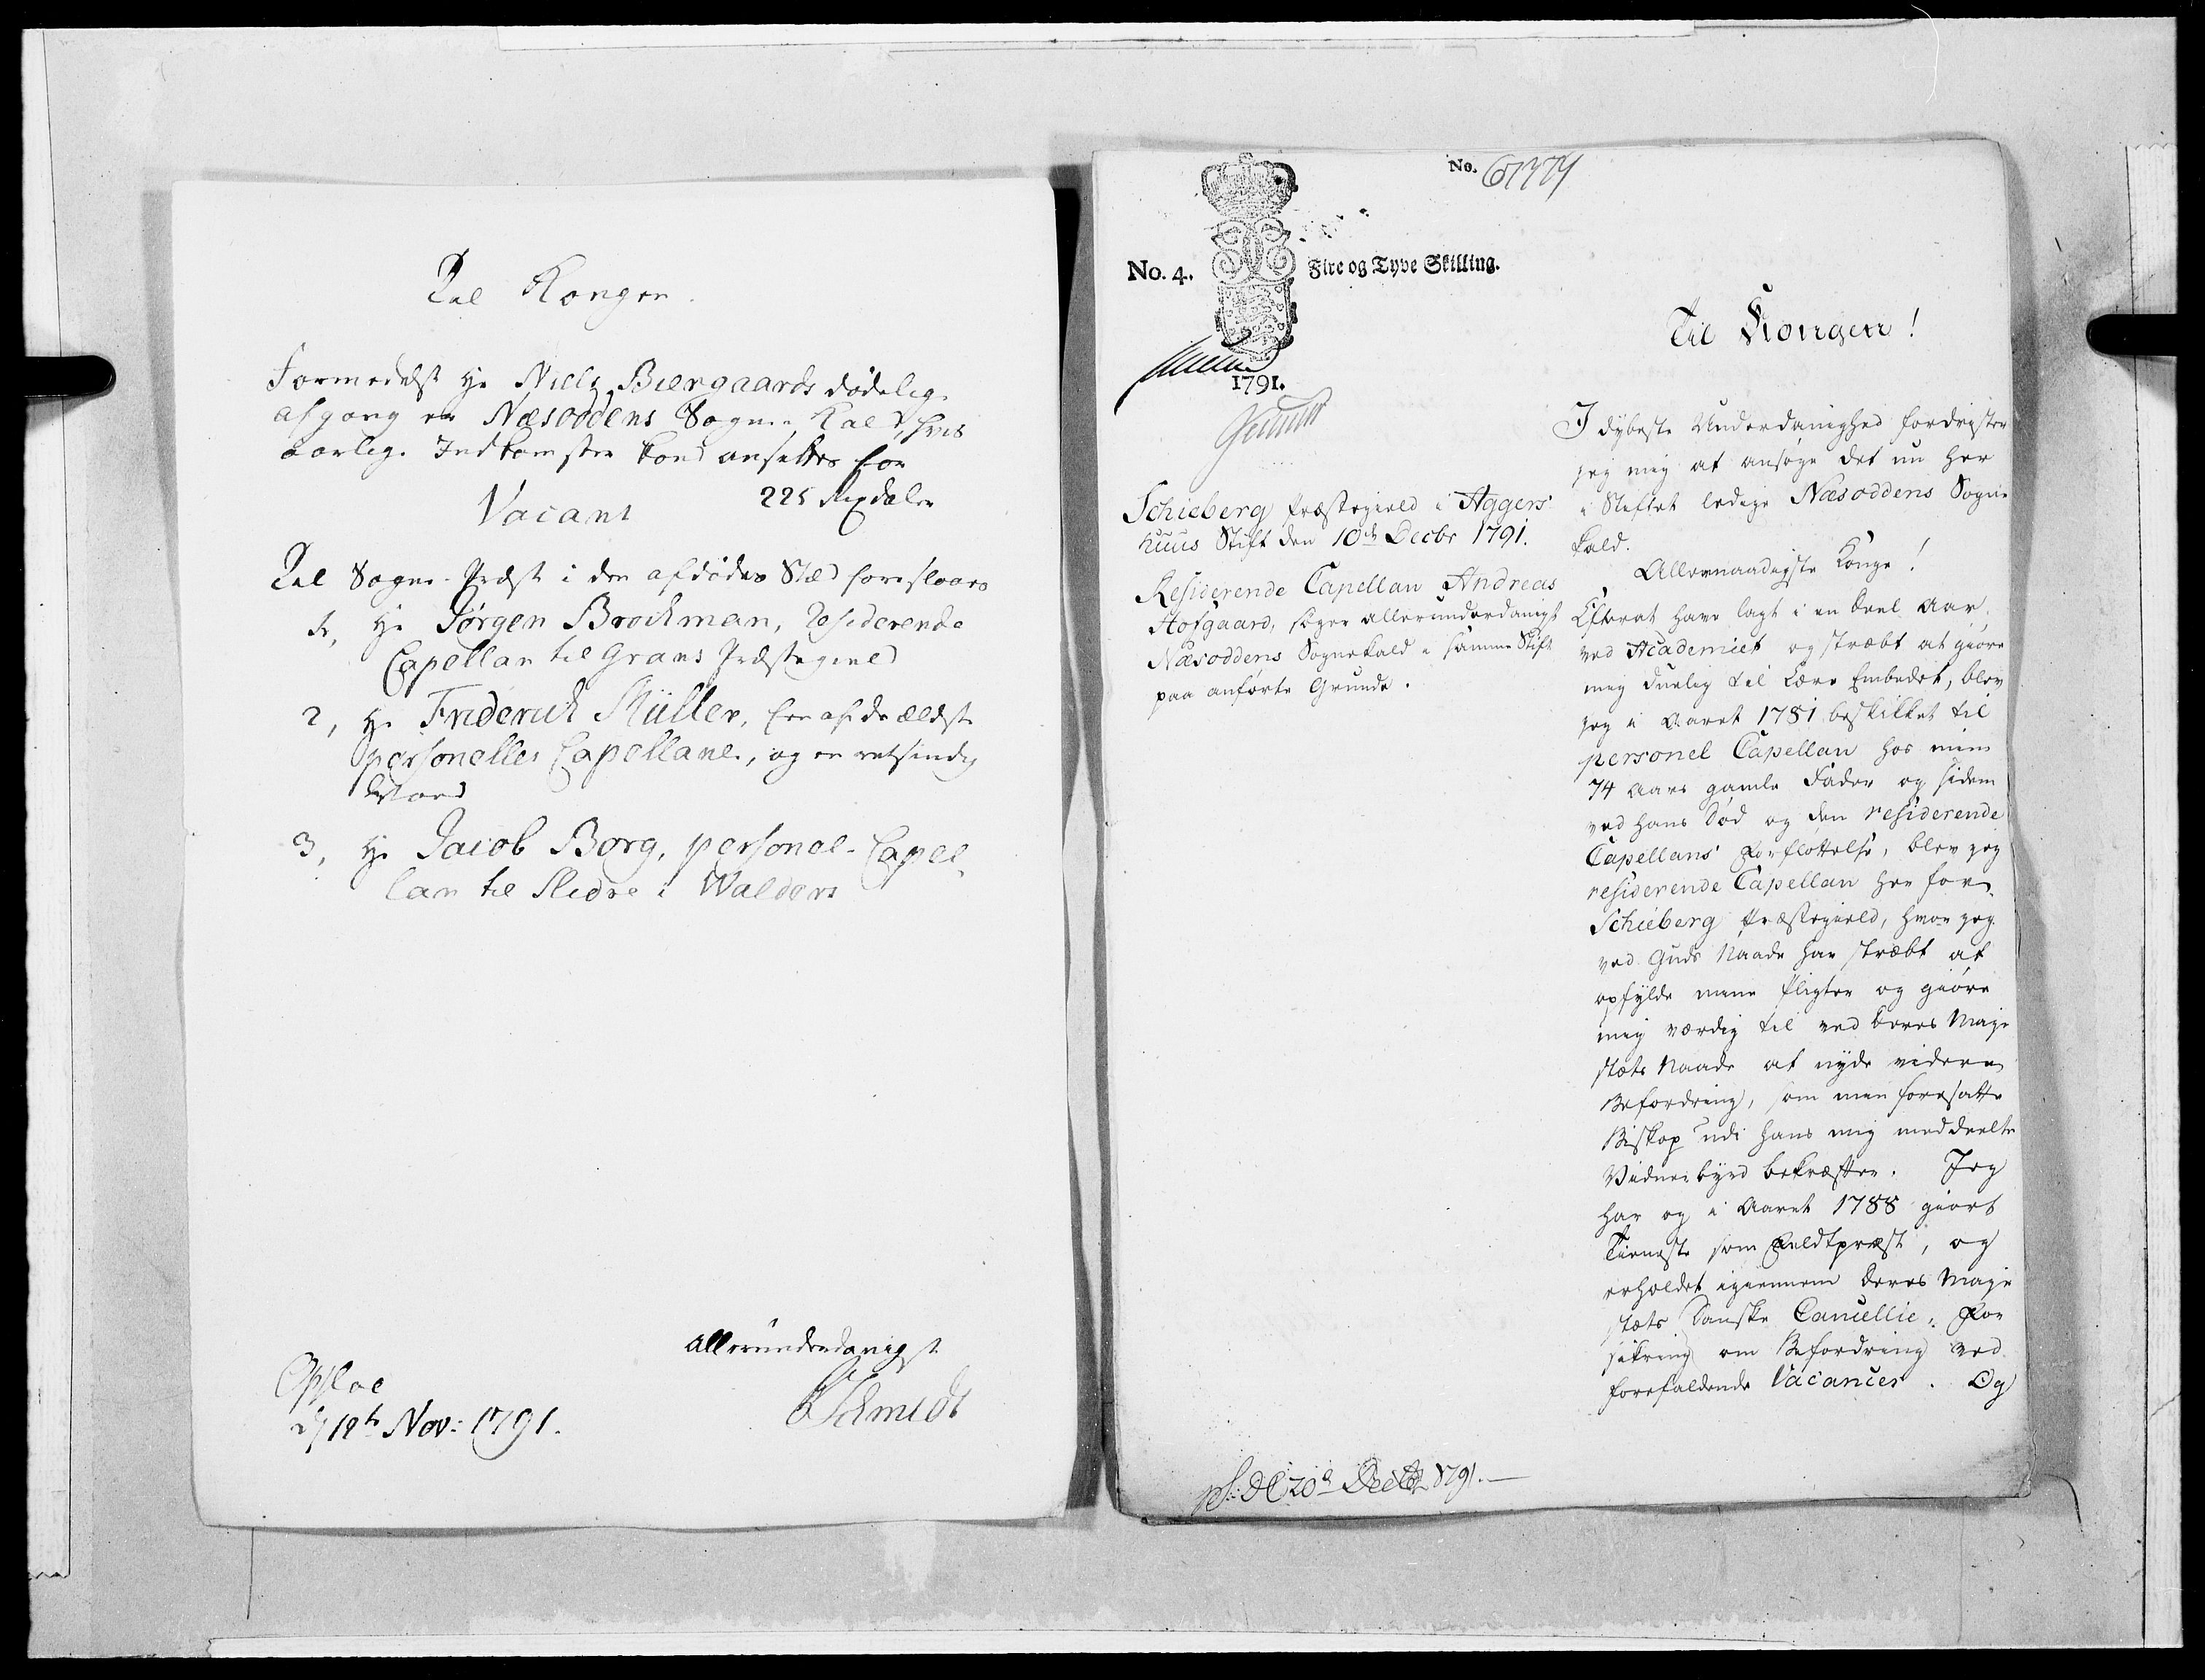 Til Kongen.
Formedelst Hr Niels Biergaards dødelig
afgang er Næsoddens Sogne-Kald, hvis
aarlig Indkomster kand ansættes for
225 Rixdaler
Vacant
Til Sogne-Præst i den afdødes Stæd foreslaaes
1, Hr Jørgen Brockman, Residerende
Capellan til Grans Præstegield
2, Hr Friderich Müller, een af de ældste
personelle Capellaner, og en retsindig
Mand
3, Hr Jacob Borg, personel-Capel-
lan til Slidre i Walders
Allerunderdanigst
Opsloe
d 18de Nov: 1791.
Schmidt
No. 67374
No. 4. Fire og Tyve Skilling.
1791.
Schieberg Præstegield i Aggers-
huus Stift den 10de Decbr 1791.
Residerende Capellan Andreas
Hofgaard, søger allerunderdanigst
Næsoddens Sognekald i samme Stift
paa anførte Grunde.
Til Kongen!
I dybeste Underdanighed fordrister
jeg mig at ansøge det nu her
i Stiftet ledige Næsoddens Sogne
kald.
Allernaadigste Konge!
Efterat have lagt i en deel Aar
ved Academiet og stræbt at giøre
mig duelig til Lære Embedet, blev
jeg i Aaret 1781 beskikket til
personel Capellan hos min
74 Aars gamle Fader og siden
ved hans Død og den residerende
Capellans Forfløttelse, blev jeg
residerende Capellan her for
Schieberg Præstegield, hvor jeg
ved Guds Naade har stræbt at
opfylde mine Pligter og giøre
mig værdig til ved Deres Maje
stæts Naade at nyde videre
Befordring, som min foresatte
Biskop udi hans mig meddeelte
Vidnesbyrd bekræfter. Jeg
har og i Aaret 1788 giort
Tieneste som Feldtpræst, og
erholdet igiennem Deres Maje
stæts Danske Cancellie, For
sikring om Befordring ved
forefaldende Vacancer. Og
ps: DC 20de Decbr 1791.